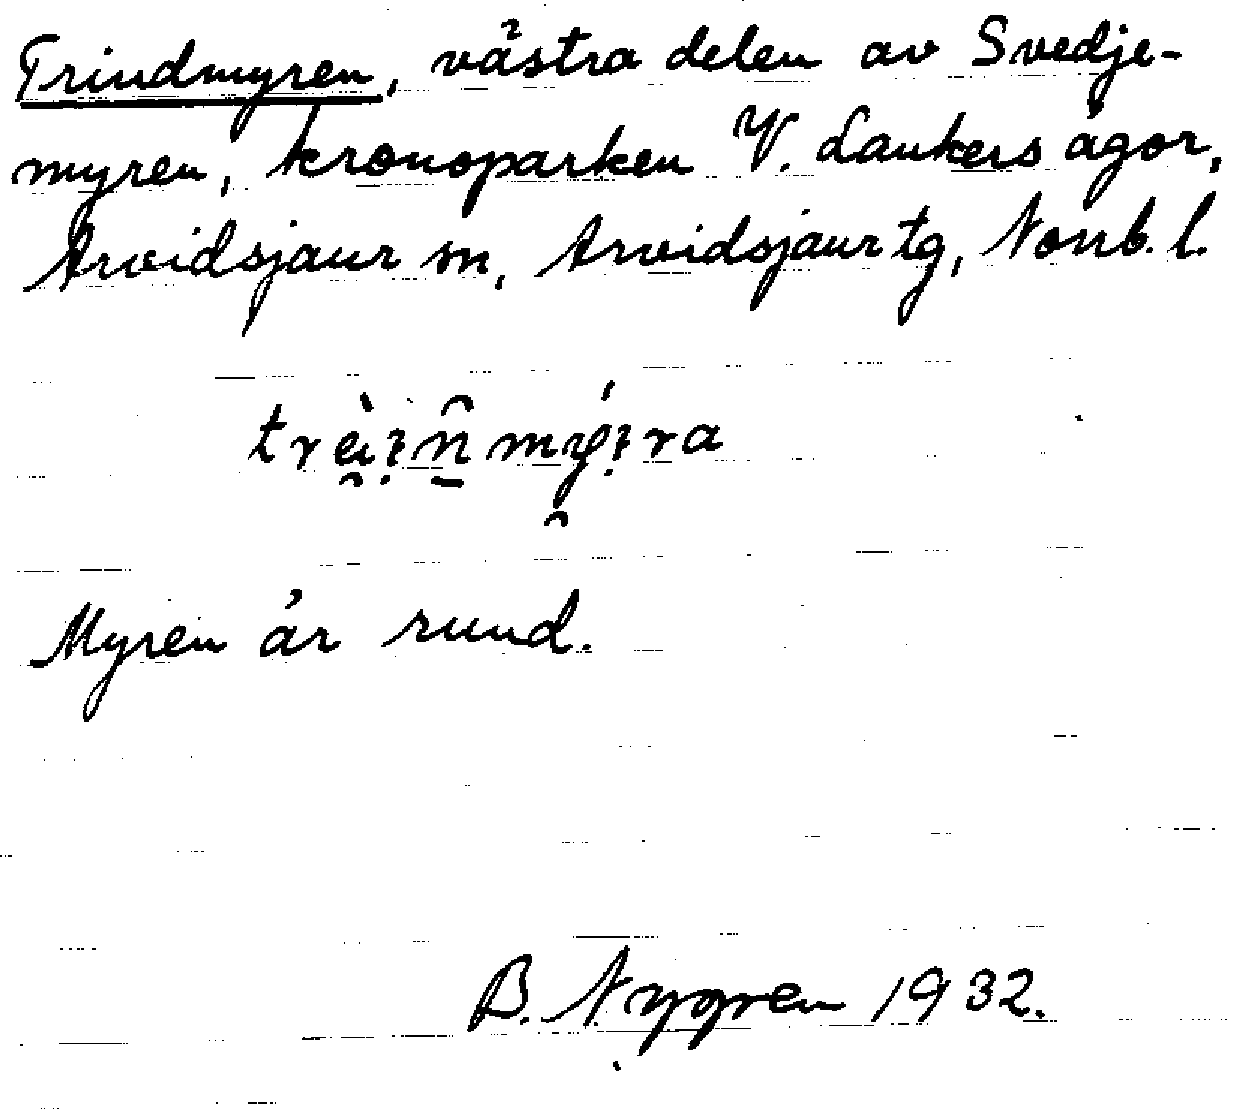 Trindmyren, västra delen av Svedje-
myren, kronoparken V. Laukers ägor,
Arvidsjaur sn, Arvidsjaur tg, Norrb. l.
Myren är rund.
B. Nygren 1932.